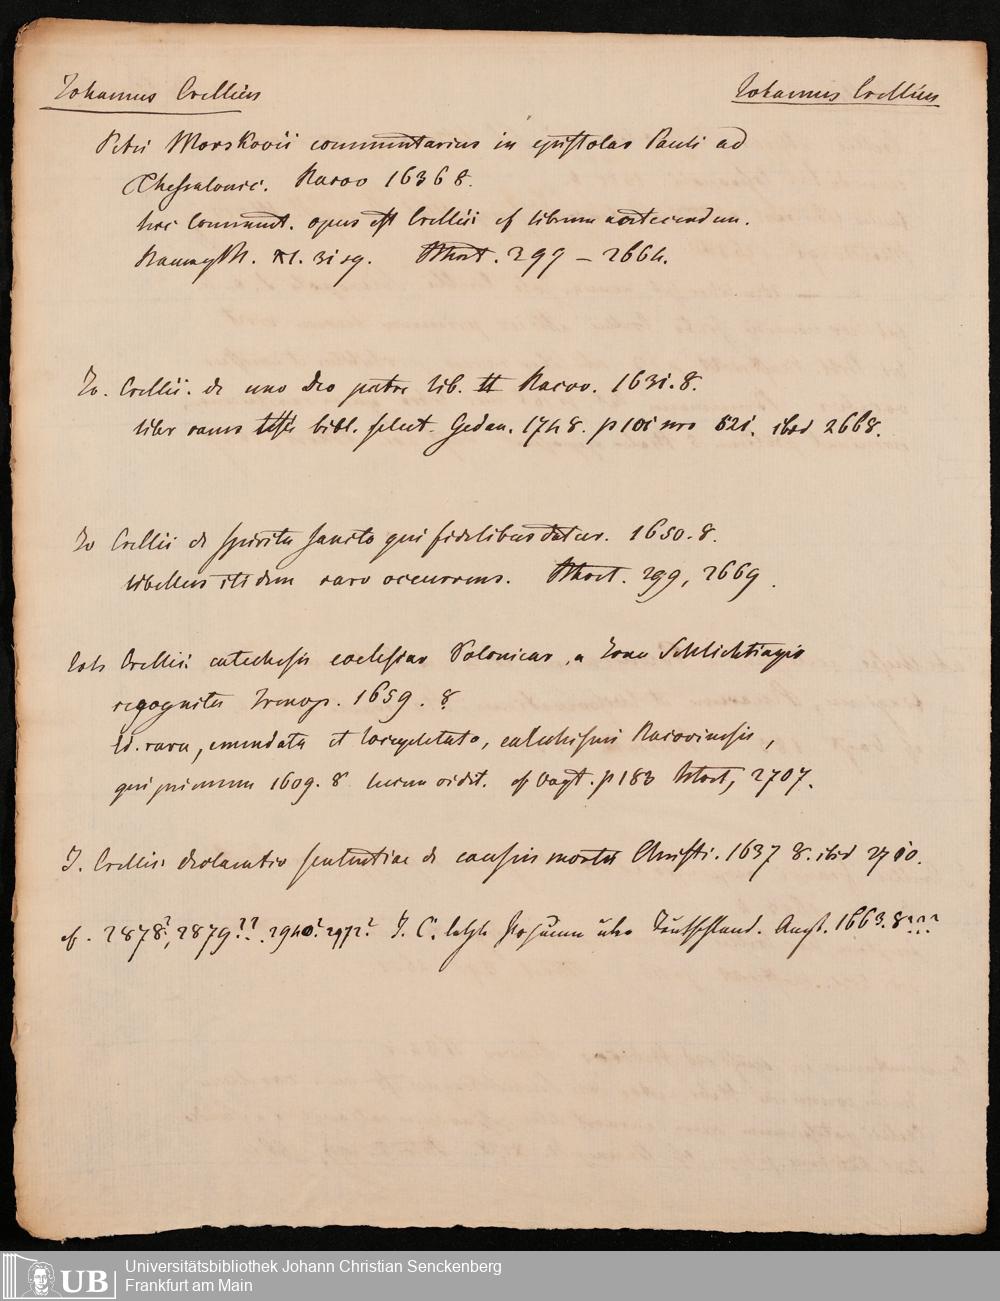 Johannes Crellius Johannes Crellius
Petri Morskovii commentarius in epistolas Pauli ad
Thessalonic. Racov 1636 8.
hoc Comment. opus est Crellii et librum
31 sq. 299 – 2664.
Jo. Crellii. de uno Deo patre lib. II Racov. 1631. 8.
liber rarus bibl. select. Gedan. 1748. p 521. ibid 2668.
Jo Crellii de spiritu sancto qui fidelibus datur. 1650. 8.
libellus itidem raro occurrens. 299, 2669.
Joh Crellii catechesis ecclesiar Polonicar, a Jona Schlichtingio
recognita Irenop. 1659. 8
Ed. rara, emendata et, catechismi Racoviensis,
qui primum 1609. 8 lucem vidit. cf Vogt. p 183 2707.
J. Crellii declaratio sententiae de causis mortis Christi. 1637 8. ibid
cf. 2878?, 2879?? J. C. letzte über Teutschland. 1663. 8???
Universitätsbibliothek Johann Christian Senckenberg
UB Frankfurt am Main